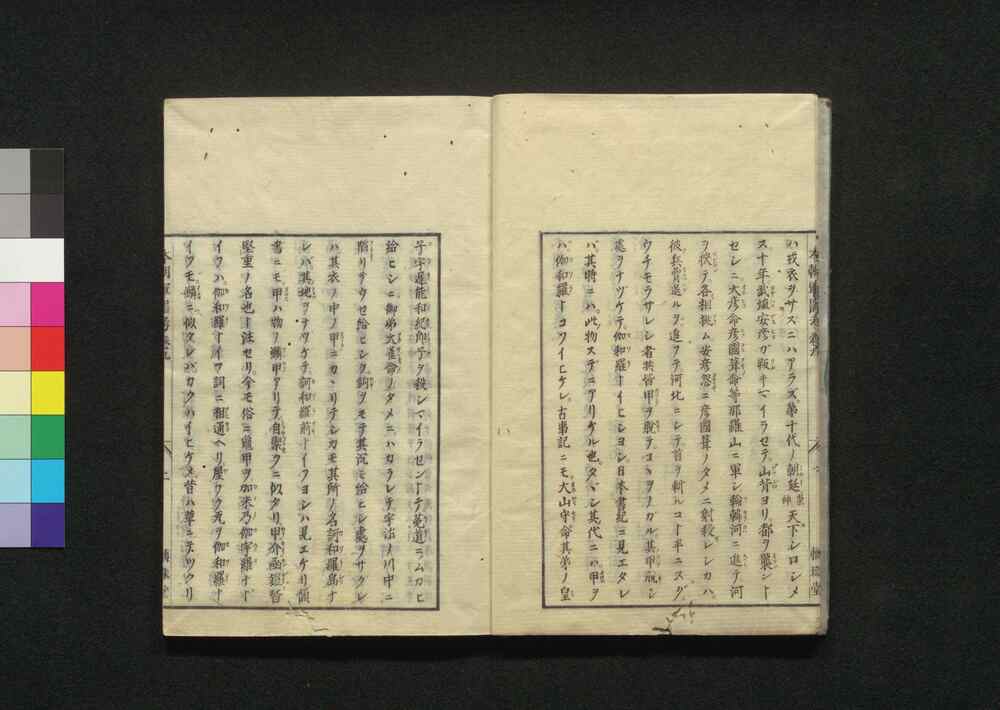 ハ戎衣ヲサスニハアラズ第十代ノ朝廷崇神天下シロシメ
ス十年武埴安彦ガ叛キマイラセテ山背ヨリ都ヲ襲ント
セシニ大彦命彦國葺命等那羅山ニ軍シ輪韓河ニ進テ河
ヲ挾テ各相挑ム安彦忽ニ彦國葺ノタメニ射殺レシカハ
彼兵背退ルヲ追ウテ河北ニシテ首ヲ斬ルコト半ニスグ
ウチモラサレシ者共皆甲ヲ脱テコヽヲノガル其甲脱シ
處ヲナヅケテ伽和羅トイヒシヨシ日本書紀ニ見エタレ
バ其時ニハ此物ステニアリケル也タヾシ其代ニハ甲ヲ
ハ伽和羅トコソイヒケレ古事記ニモ大山守命其弟ノ皇
子宇遲能和紀郎子ヲ殺シマイラセントテ菟道ラムカヒ
給ヒシニ御弟大雀命ノタメニハカラレテ宇治ノ川中ニ
陷リテウセ給ヒシク鉤ヲモテ其沉モ給ヒシ處ヲサグレ
ハ其衣ノ中ノ甲ニカヽリテシカモ其所ノ名訶和羅鳥ナ
レバ其地ヲナヅケテ訶和羅前トイフヨシハ見エケリ韻
書ニモ甲ハ物ノ孵甲アリテ自禦クニ似タリ甲介函鎧皆
堅重ノ名也ト注セリ今モ俗ニ龜甲ヲ加米乃伽宇羅ナド
イフハ伽和羅トイフ詞ニ相通ヘリ屋フク瓦ヲ伽和羅ト
イフモ頗ニ似タレバカクハイヒケメ昔ハ草ニテツクリ